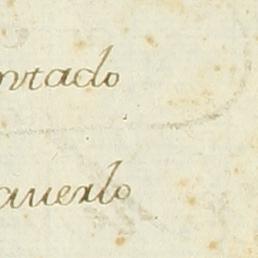 ntado
auerlo